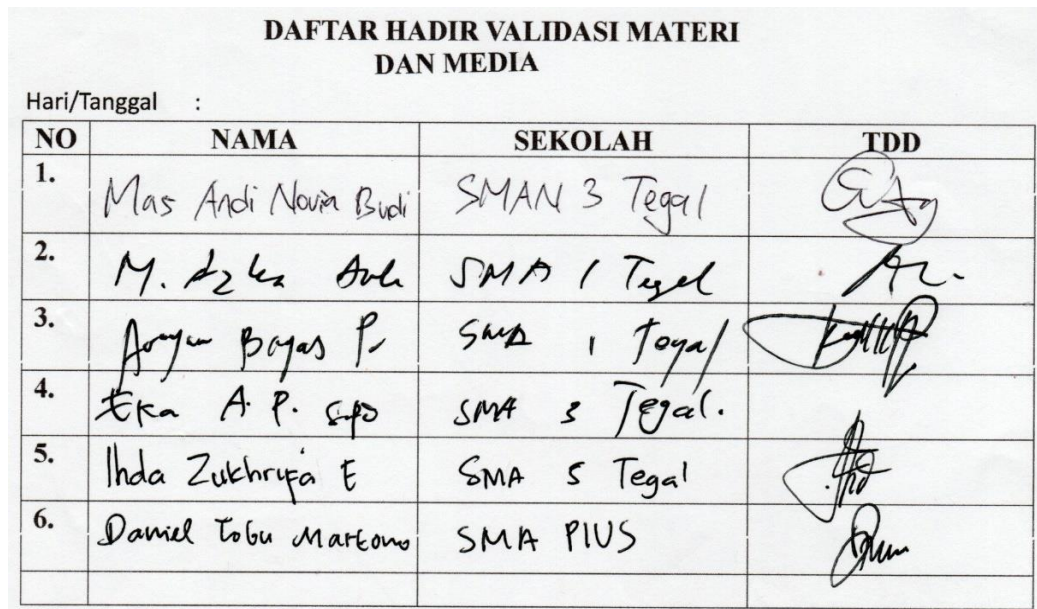 DAFTAR HADIR VALIDASI MATERI
DAN MEDIA
Hari/Tanggal :
NO NAMA SEKOLAH TDD
1. Mas Andi Novia Budi SMAN 3 Tegal
2. M. Azka SMA 1 Tegal
3. Bagas P. SMA 1 Tegal
4. Eka A. P. SPd SMA 3 Tegal.
5. Ihda Zukhrufa E SMA 5 Tegal
6. Daniel Martono SMA PIUS